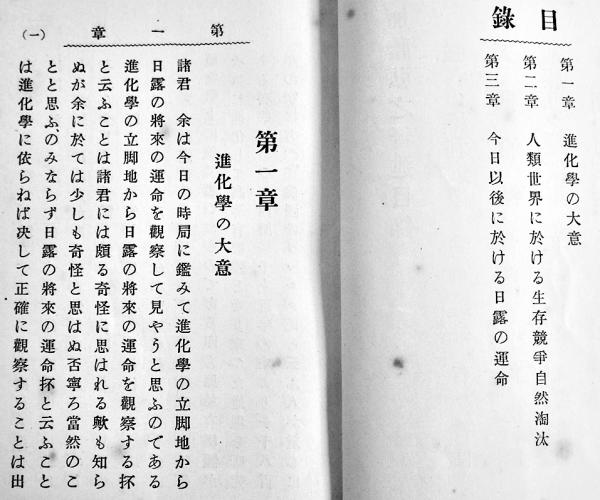 目錄
第一章 進化學の大意
第二章 人類世界に於ける生存競爭自然淘汰
第三章 今日以後に於ける日露の運命
第一章
(一)
第一章
進化學の大意
諸君 余は今日の時局に鑑みて進化學の立脚地から
日露の將來の運命を觀察して見やうと思ふのである
進化學の立脚地から日露の將來の運命を觀察する抔
と云ふことは諸君には頗る奇怪に思はれる歟も知ら
ぬが余に於ては少しも奇怪と思はぬ否寧ろ當然のこ
とと思ふのみならず日露の將來の運命抔と云ふこと
は進化學に依らねば决して正確に觀察することは出